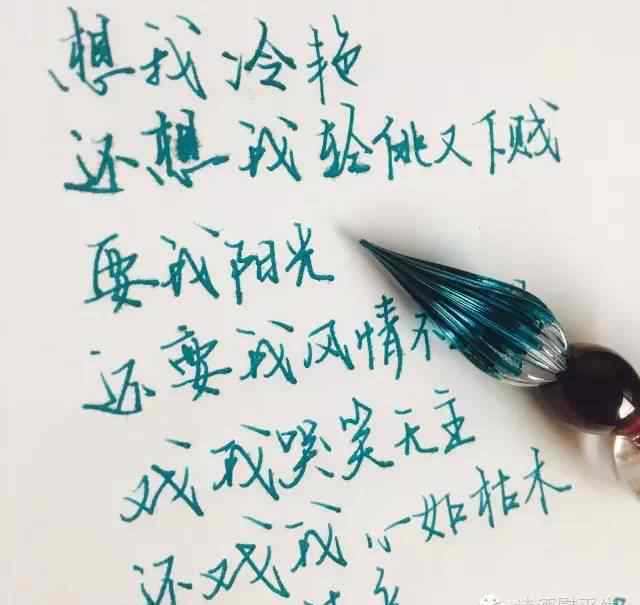 想我冷艳
还想我轻佻又下贱
要我阳光
还要我风情不
戏我哭笑无主
还戏我心如枯木